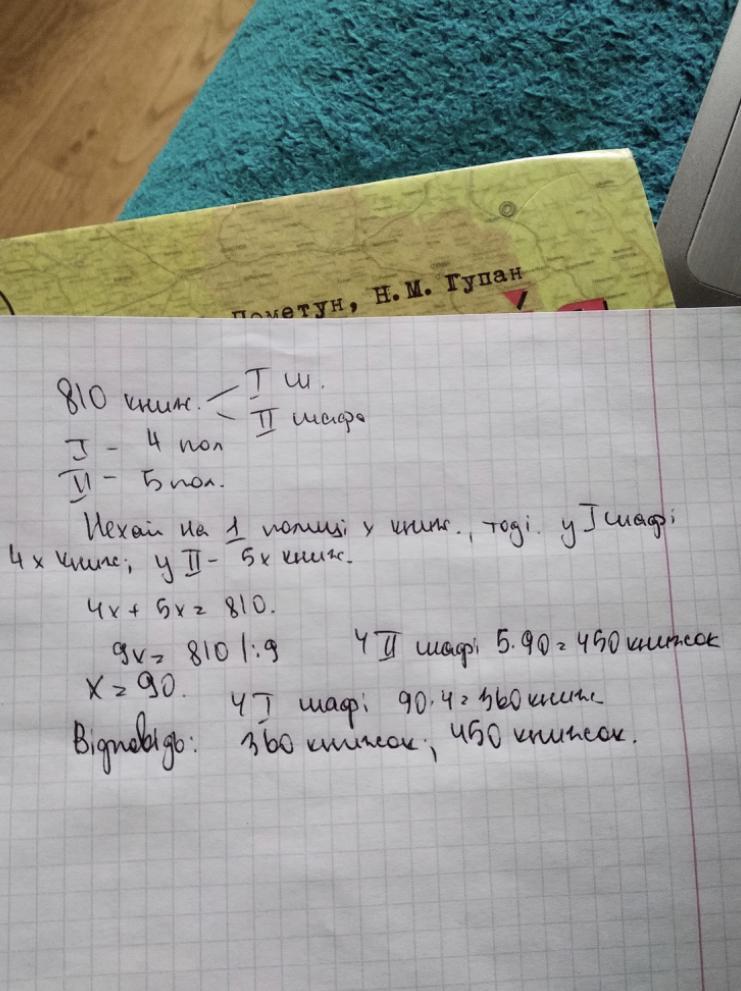 Пометун, Н.М. Гупан
810 книж. I ш.
II шафа
I - 4 пол
II - 5 пол.
Нехай на 1 полиці x книж., тоді у I шафі
4x книж; у II - 5x книж.
4x + 5x = 810.
9x = 810 |:9
У II шафі 5·90 = 450 книжок
x = 90.
У I шафі 90·4 = 360 книж
Відповідь: 360 книжок; 450 книжок.